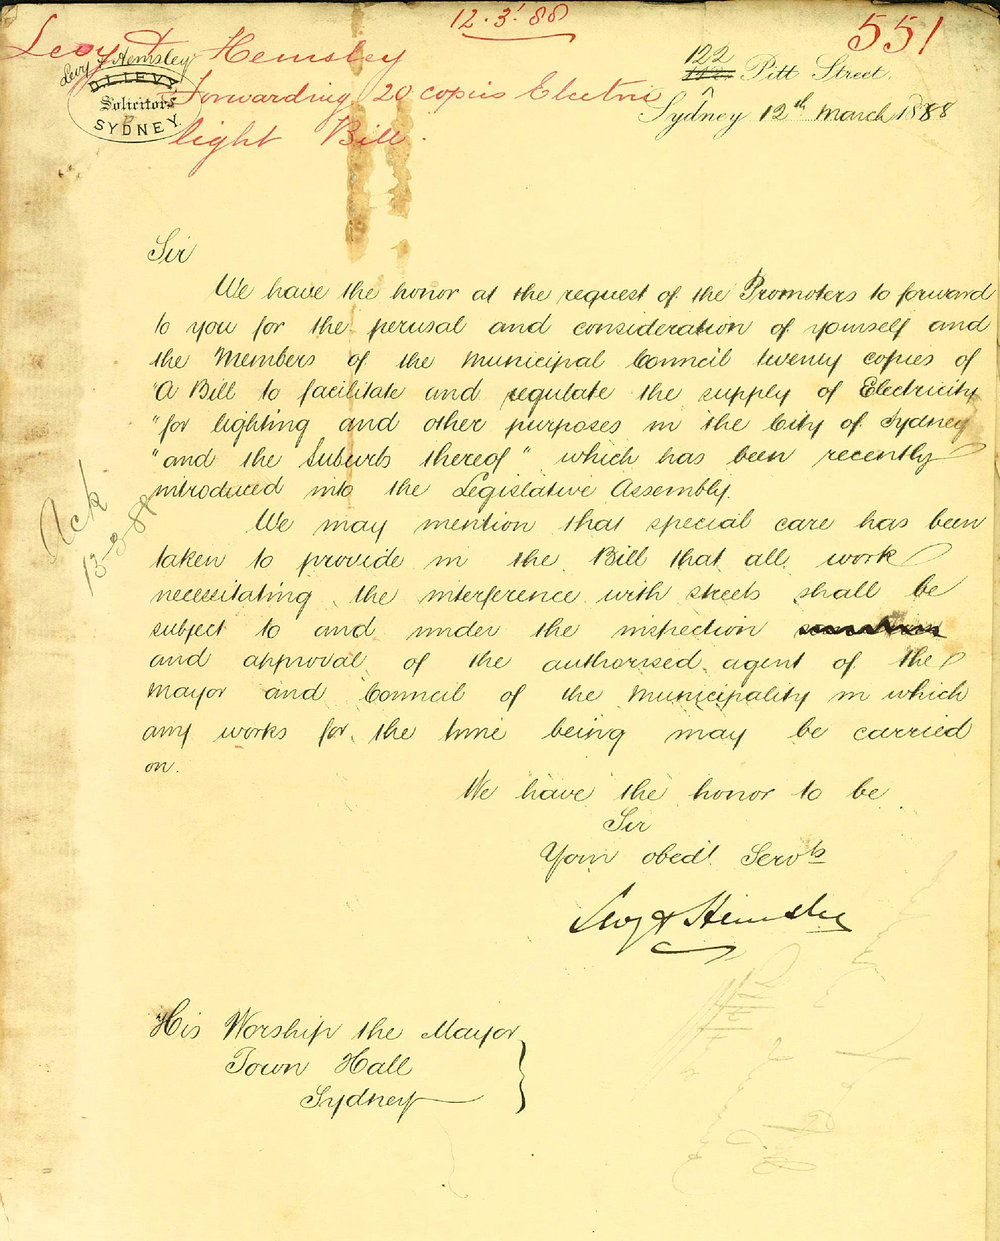 12.3.88
551
Levy & Hemsley
Forwarding 20 copies Electric
light Bill.
Levy & Hemsley
D.L. LEVY,
Solicitors
SYDNEY.
122 Pitt Street,
Sydney 12th March 1888
Sir
We have the honor at the request of the Promoters to forward
to you for the perusal and consideration of yourself and
the Members of the Municipal Council twenty copies of
"A Bill to facilitate and regulate the supply of Electricity
"for lighting and other purposes in the City of Sydney
"and the Suburbs thereof" which has been recently
introduced into the Legislative Assembly.
We may mention that special care has been
taken to provide in the Bill that all work
necessitating the interference with streets shall be
subject to and under the inspection
and approval of the authorised agent of the
Mayor and Council of the Municipality in which
any works for the time being may be carried
on.
Ack
13-3-88
We have the honor to be
Sir
Your obedt Servts
Levy & Hemsley
His Worship the Mayor
Town Hall
Sydney